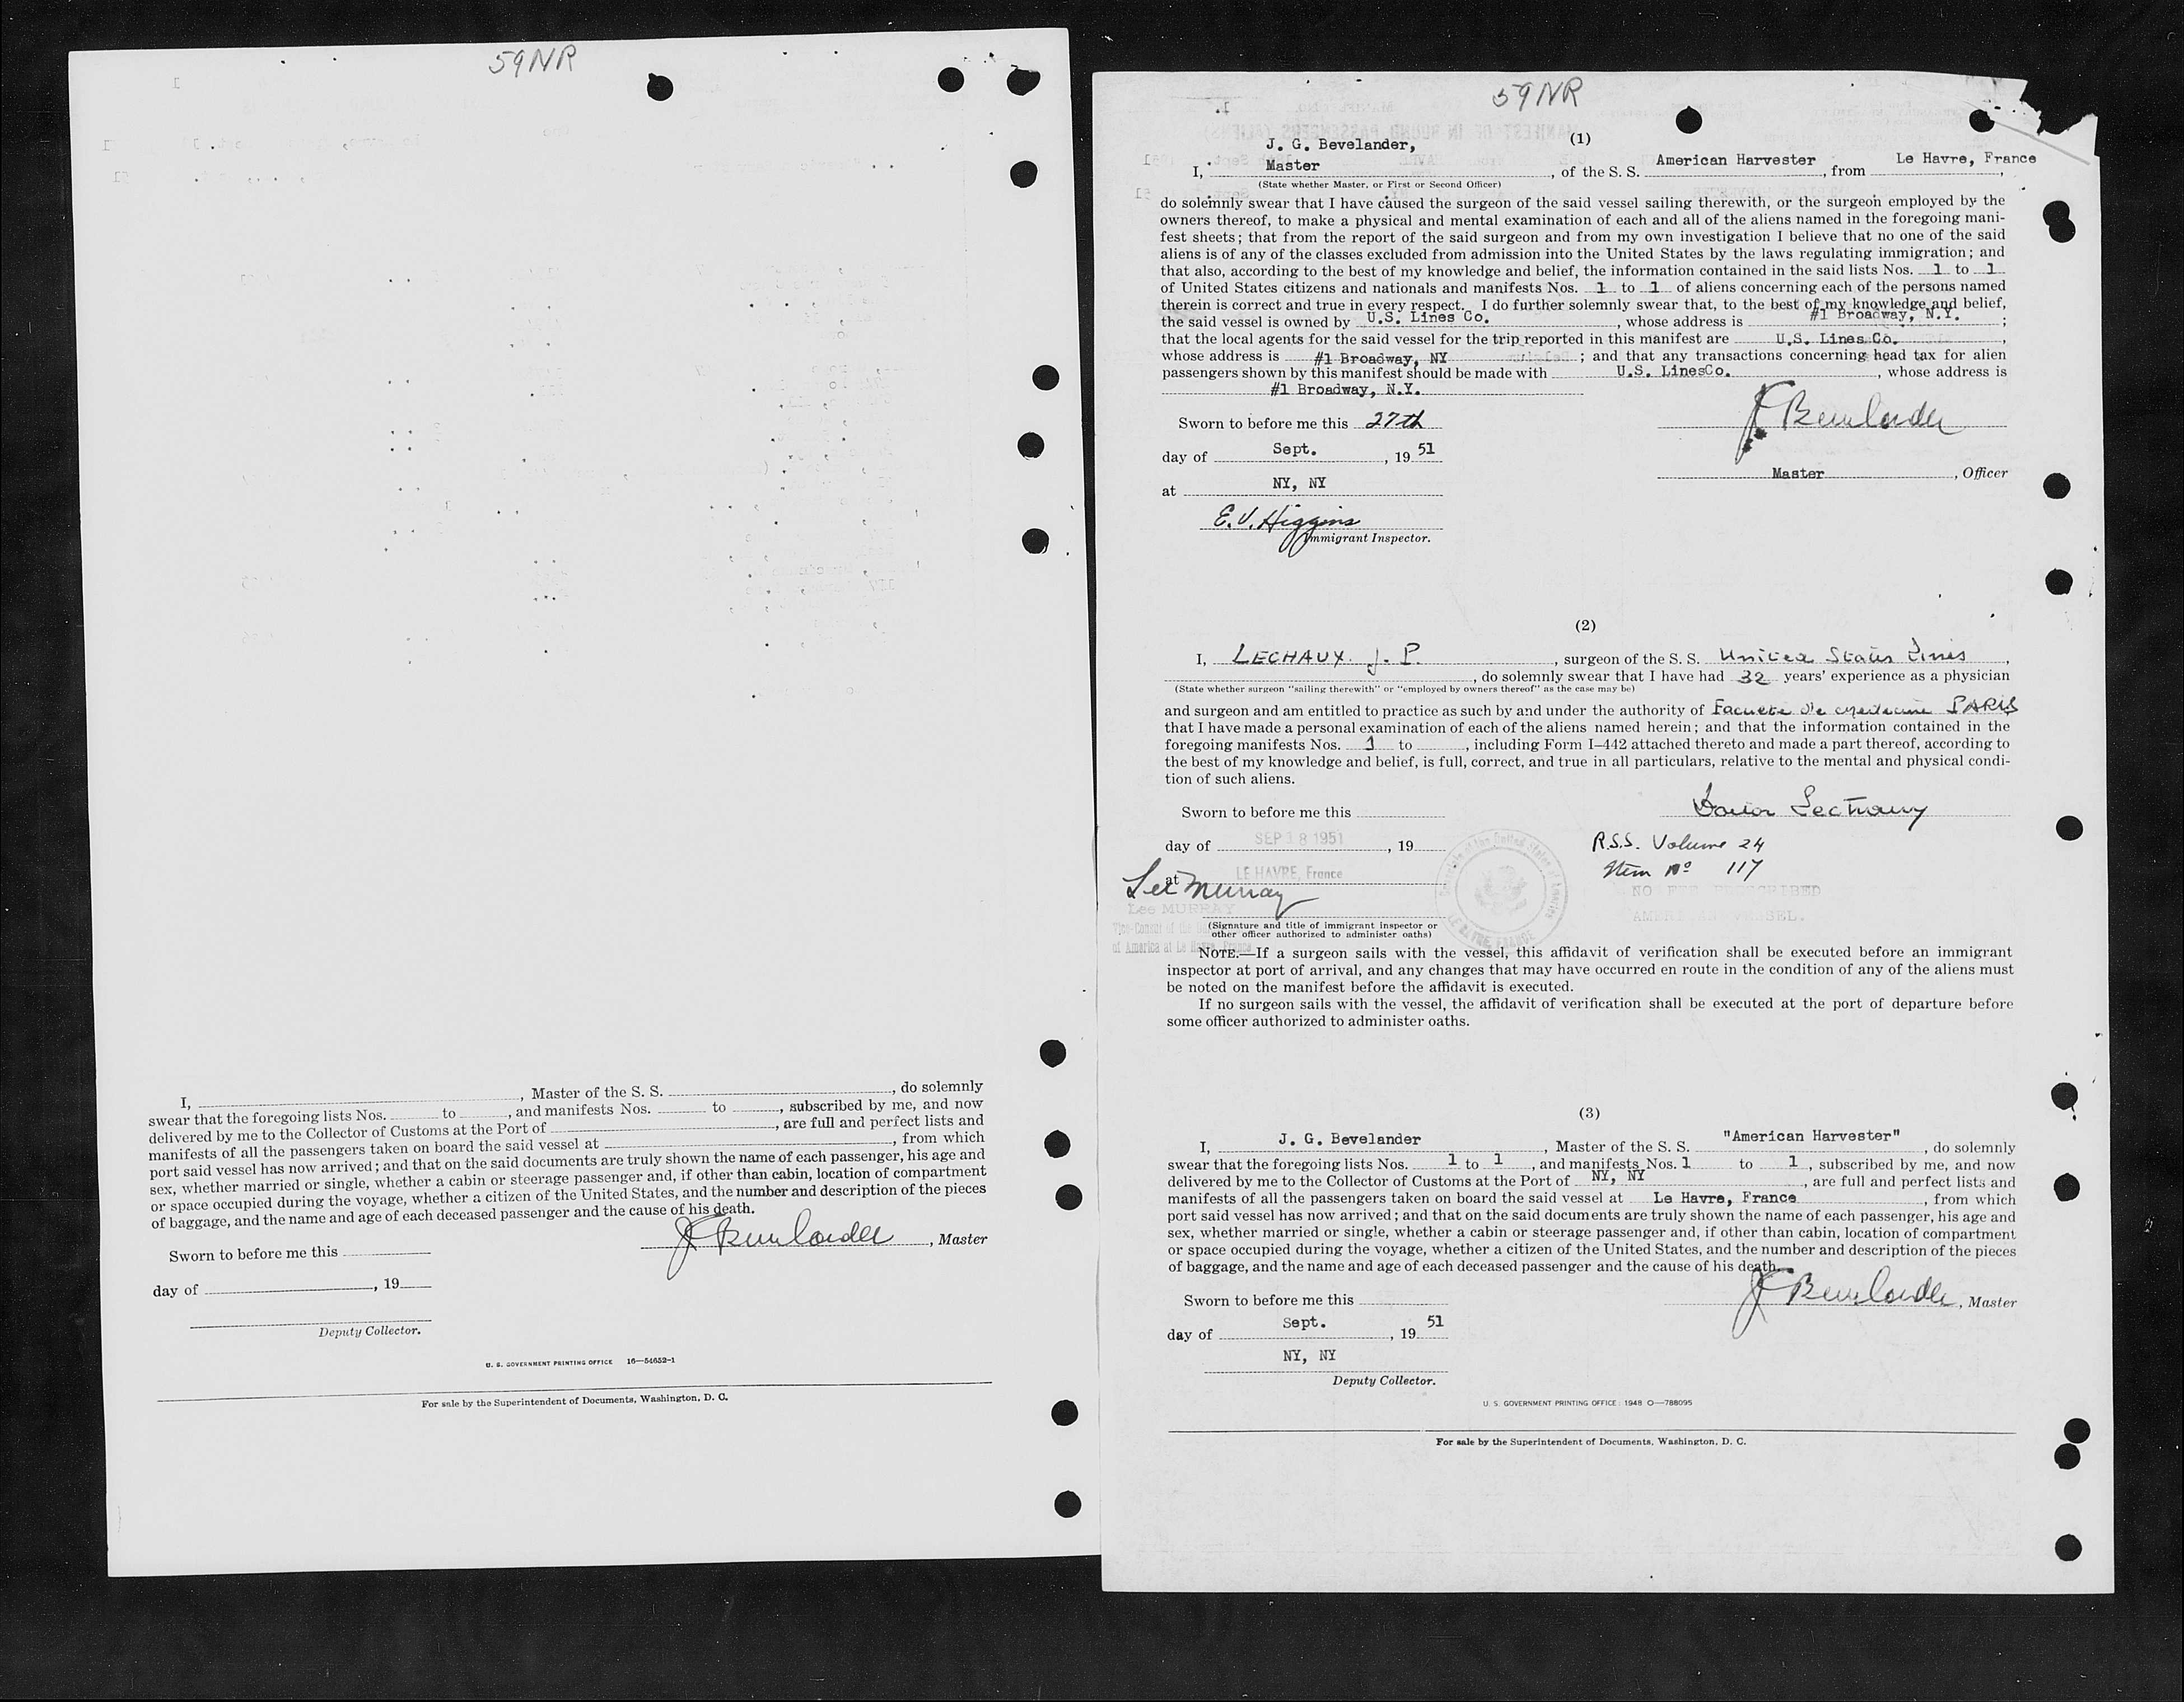 59NR
I, , Master of the S. S. , do solemnly
swear that the foregoing lists Nos. to , and manifests Nos. to , subscribed by me, and now
delivered by me to the Collector of Customs at the Port of , are full and perfect lists and
manifests of all the passengers taken on board the said vessel at , from which
port said vessel has now arrived; and that on the said documents are truly shown the name of each passenger, his age and
sex, whether married or single, whether a cabin or steerage passenger and, if other than cabin, location of compartment
or space occupied during the voyage, whether a citizen of the United States, and the number and description of the pieces
of baggage, and the name and age of each deceased passenger and the cause of his death.
J G Bevelander , Master
Sworn to before me this
day of , 19
Deputy Collector.
U. S. GOVERNMENT PRINTING OFFICE 16—54652-1
For sale by the Superintendent of Documents, Washington, D. C.
59NR
(1)
J. G. Bevelander,
I, Master , of the S. S. American Harvester , from Le Havre, France ,
(State whether Master, or First or Second Officer)
do solemnly swear that I have caused the surgeon of the said vessel sailing therewith, or the surgeon employed by the
owners thereof, to make a physical and mental examination of each and all of the aliens named in the foregoing mani-
fest sheets; that from the report of the said surgeon and from my own investigation I believe that no one of the said
aliens is of any of the classes excluded from admission into the United States by the laws regulating immigration; and
that also, according to the best of my knowledge and belief, the information contained in the said lists Nos. 1 to 1
of United States citizens and nationals and manifests Nos. 1 to 1 of aliens concerning each of the persons named
therein is correct and true in every respect. I do further solemnly swear that, to the best of my knowledge and belief,
the said vessel is owned by U.S. Lines Co. , whose address is #1 Broadway, N.Y. ;
that the local agents for the said vessel for the trip reported in this manifest are U.S. Lines Co. ,
whose address is #1 Broadway, NY ; and that any transactions concerning head tax for alien
passengers shown by this manifest should be made with U.S. LinesCo. , whose address is
#1 Broadway, N.Y.
Sworn to before me this 27th
J G Bevelander
day of Sept. , 19 51
Master , Officer
at NY, NY
E. V. Higgins
Immigrant Inspector.
(2)
I, LECHAUX. J. P. , surgeon of the S. S. United States Lines ,
, do solemnly swear that I have had 32 years' experience as a physician
(State whether surgeon "sailing therewith" or "employed by owners thereof" as the case may be)
and surgeon and am entitled to practice as such by and under the authority of de PARIS
that I have made a personal examination of each of the aliens named herein; and that the information contained in the
foregoing manifests Nos. 1 to , including Form I–442 attached thereto and made a part thereof, according to
the best of my knowledge and belief, is full, correct, and true in all particulars, relative to the mental and physical condi-
tion of such aliens.
Sworn to before me this
day of SEP 18 1951 , 19
R.S.S. Volume 24
Item No 117
at LE HAVRE, France
Lee Murray
NO FEE PRESCRIBED
AMERICAN VESSEL.
Lee MURRAY
Vice-Consul of the
of America at Le Havre, France
(Signature and title of immigrant inspector or
other officer authorized to administer oaths)
NOTE.—If a surgeon sails with the vessel, this affidavit of verification shall be executed before an immigrant
inspector at port of arrival, and any changes that may have occurred en route in the condition of any of the aliens must
be noted on the manifest before the affidavit is executed.
If no surgeon sails with the vessel, the affidavit of verification shall be executed at the port of departure before
some officer authorized to administer oaths.
(3)
I, J. G. Bevelander , Master of the S. S. "American Harvester" , do solemnly
swear that the foregoing lists Nos. 1 to 1 , and manifests Nos. 1 to 1 , subscribed by me, and now
delivered by me to the Collector of Customs at the Port of NY, NY , are full and perfect lists and
manifests of all the passengers taken on board the said vessel at Le Havre, France , from which
port said vessel has now arrived; and that on the said documents are truly shown the name of each passenger, his age and
sex, whether married or single, whether a cabin or steerage passenger and, if other than cabin, location of compartment
or space occupied during the voyage, whether a citizen of the United States, and the number and description of the pieces
of baggage, and the name and age of each deceased passenger and the cause of his death.
J G Bevelander , Master
Sworn to before me this
day of Sept. , 19 51
NY, NY
Deputy Collector.
U. S. GOVERNMENT PRINTING OFFICE : 1948 O—788095
For sale by the Superintendent of Documents, Washington, D. C.